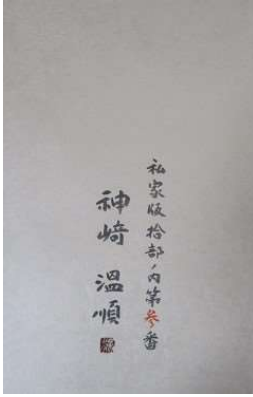 私家版拾部ノ内第参番
神﨑温順